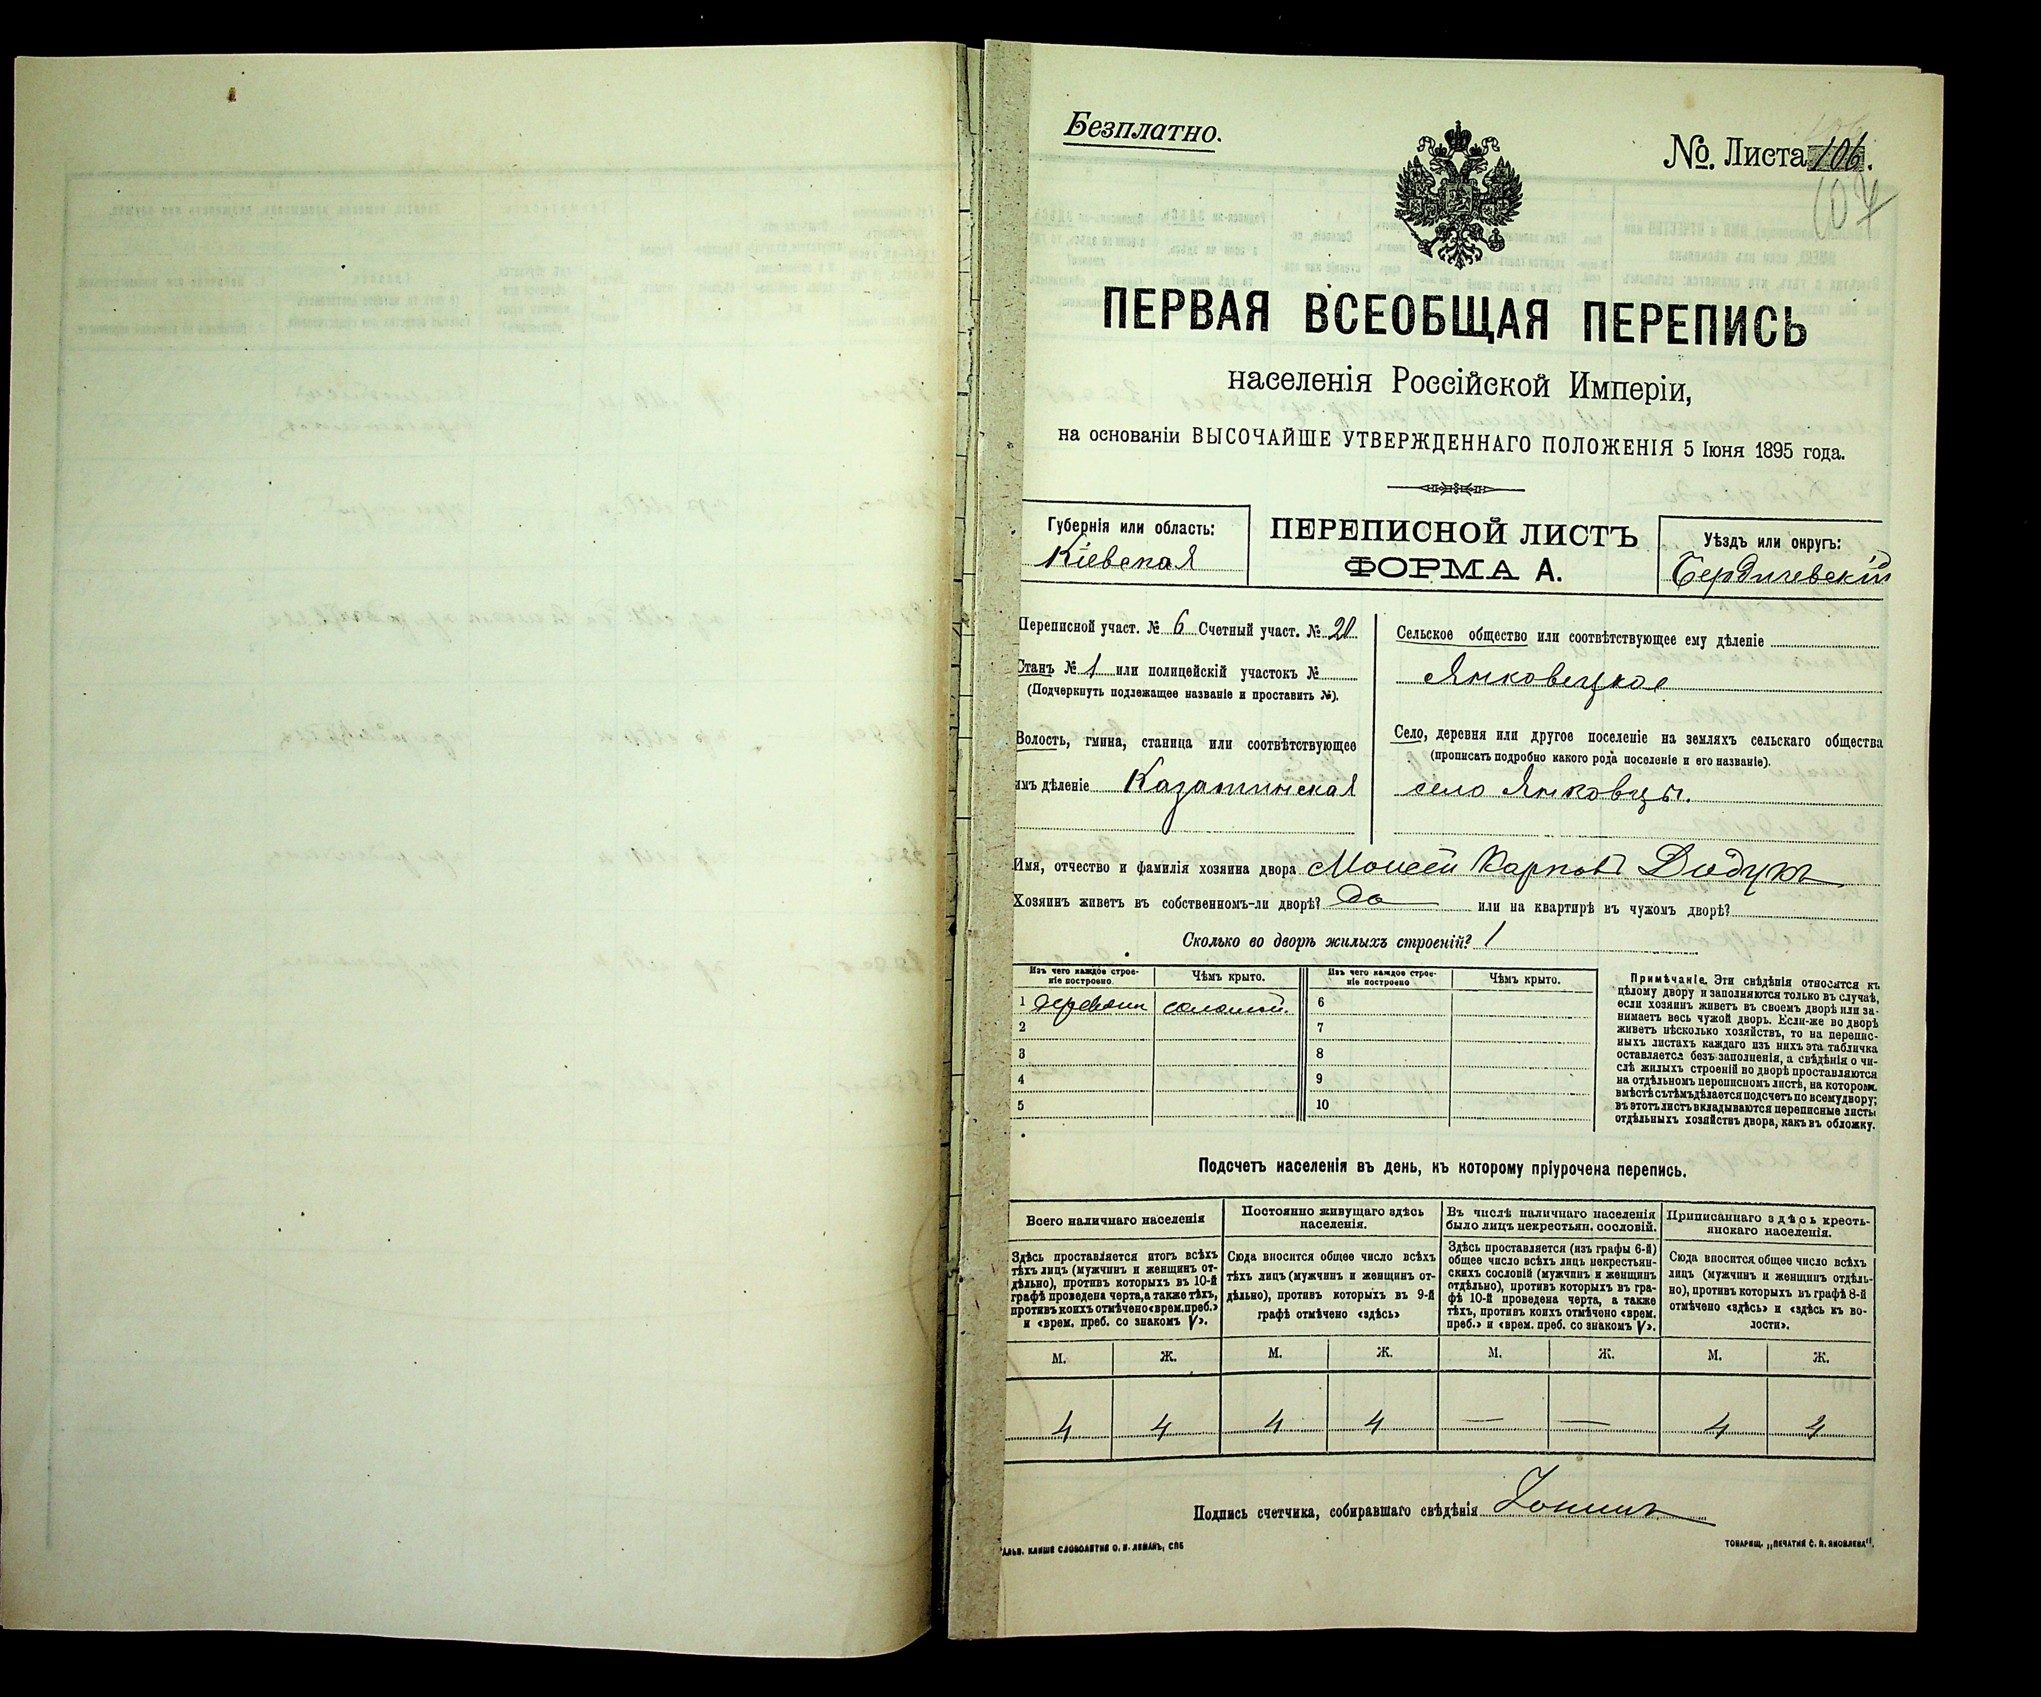 Безплатно.
№. Листа 106.
107
ПЕРВАЯ ВСЕОБЩАЯ ПЕРЕПИСЬ
населенія Россійской Имперіи,
на основаніи ВЫСОЧАЙШЕ УТВЕРЖДЕННАГО ПОЛОЖЕНІЯ 5 Іюня 1895 года.
Губернія или область:
Кіевская
ПЕРЕПИСНОЙ ЛИСТЪ
ФОРМА А.
Уѣздъ или округъ:
Бердичевскій
Переписной участ. № 6 Счетный участ. № 20
Станъ № 1 или полицейскій участокъ №
(Подчеркнуть подлежащее названіе и проставить №).
Волость, гмина, станица или соотвѣтствующее
имъ дѣленіе Казатинская
Сельское общество или соотвѣтствующее ему дѣленіе
Янковецкое
Село, деревня или другое поселеніе на земляхъ сельскаго общества
(прописать подробно какого рода поселеніе и его названіе).
село Янковцы.
Имя, отчество и фамилія хозяина двора Моисей Карповъ Дидукъ
Хозяинъ живетъ въ собственномъ-ли дворѣ? Да или на квартирѣ въ чужомъ дворѣ?
Сколько во дворѣ жилыхъ строеній? 1
Изъ чего каждое строе-
ніе построено.
Чѣмъ крыто.
Изъ чего каждое строе-
ніе построено
Чѣмъ крыто.
1 деревян соломой. 6
2 7
3 8
4 9
5 10
Примѣчаніе. Эти свѣдѣнія относятся къ
цѣлому двору и заполняются только въ случаѣ,
если хозяинъ живетъ въ своемъ дворѣ или за-
нимаетъ весь чужой дворъ. Если-же во дворѣ
живетъ нѣсколько хозяйствъ, то на перепис-
ныхъ листахъ каждаго изъ нихъ эта табличка
оставляется безъ заполненія, а свѣдѣнія о чи-
слѣ жилыхъ строеній во дворѣ проставляются
на отдѣльномъ переписномъ листѣ, на которомъ
вмѣстѣ съ тѣмъ дѣлается подсчетъ по всему двору;
въ этотъ листъ вкладываются переписные листы
отдѣльныхъ хозяйствъ двора, какъ въ обложку.
Подсчетъ населенія въ день, къ которому пріурочена перепись.
Всего наличнаго населенія
Здѣсь проставляется итогъ всѣхъ
тѣхъ лицъ (мужчинъ и женщинъ от-
дѣльно), противъ которыхъ въ 10-й
графѣ проведена черта, а также тѣхъ,
противъ коихъ отмѣчено «врем. преб.»
и «врем. преб. со знакомъ V».
Постоянно живущаго здѣсь
населенія.
Сюда вносится общее число всѣхъ
тѣхъ лицъ (мужчинъ и женщинъ от-
дѣльно), противъ которыхъ въ 9-й
графѣ отмѣчено «здѣсь»
Въ числѣ наличнаго населенія
было лицъ некрестьян. сословій.
Здѣсь проставляется (изъ графы 6-й)
общее число всѣхъ лицъ некрестьян-
скихъ сословій (мужчинъ и женщинъ
отдѣльно), противъ которыхъ въ гра-
фѣ 10-й проведена черта, а также
тѣхъ, противъ коихъ отмѣчено «врем.
преб.» и «врем. преб. со знакомъ V».
Приписаннаго здѣсь кресть-
янскаго населенія.
Сюда вносится общее число всѣхъ
лицъ (мужчинъ и женщинъ отдѣль-
но), противъ которыхъ въ графѣ 8-й
отмѣчено «здѣсь» и «здѣсь къ во-
лости».
М. Ж. М. Ж. М. Ж. М. Ж.
4 4 4 4 — — 4 4
Подпись счетчика, собиравшаго свѣдѣнія
КЛИШЕ СЛОВОЛИТНИ О. И. ЛЕМАНЪ, СПБ
ТОВАРИЩ. „ПЕЧАТНИ С. П. ЯКОВЛЕВА".